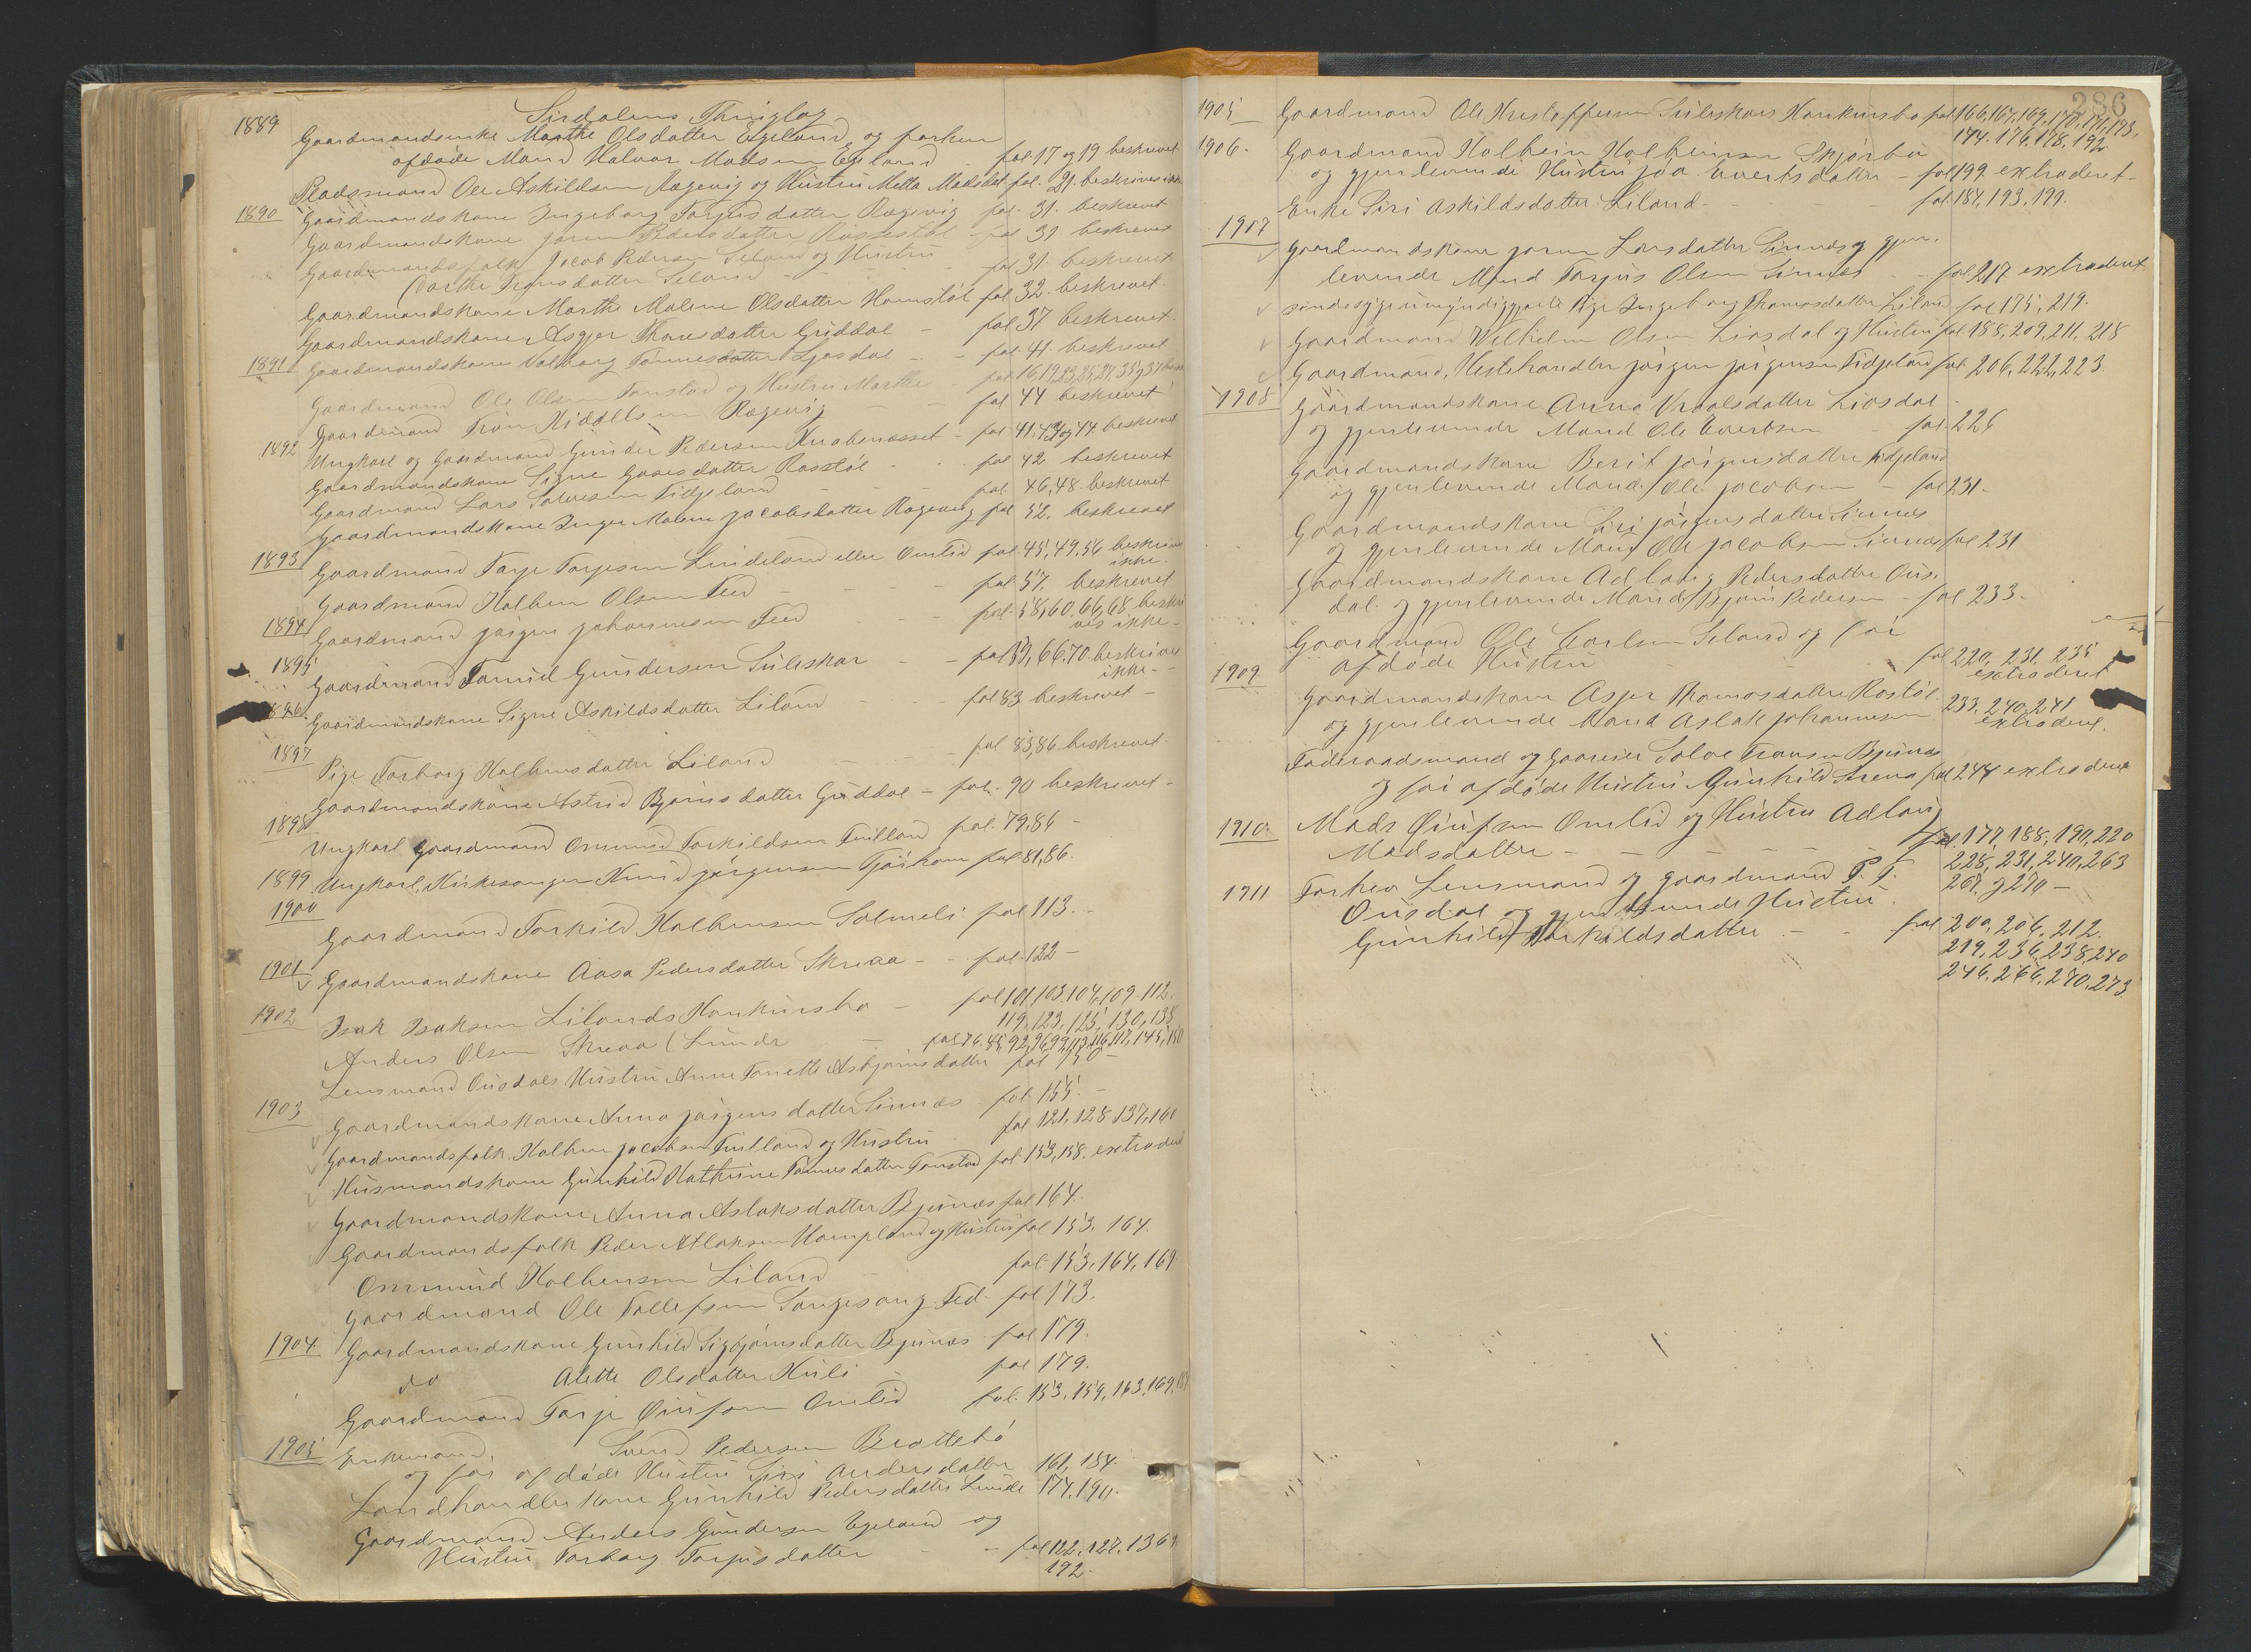 Sirdalens Thinglag
1889 Gaardmandsenke Marthe Olsdatter Egeland og forhen
afdøde Mand Halvor Madsen Egeland fol. 17 og 19 beskrevet
Pladsmand Ole Askildsen Rægevig og Hustru Metta Madsdat fol. 21. beskrives ikke
1890 Gaardmandskone Ingeborg Torjusdatter Rægevig fol. 31. beskrevet
Gaardmandskone Joren Pedersdatter fol 31 beskrevet
Gaardmandsfolk Jacob Pedersen Seland og Hustru
Dorthe datter Seland fol 31. beskrevet
Gaardmandskone Marthe Malene Olsdatter Homstøl fol 32. beskrevet.
Gaardmandskone Asgjer Thorsdatter Guddal fol 37 beskrevet
1891 Gaardmandskone Valborg Tønnesdatter Ljosdal fol. 41. beskrevet
Gaardmand Ole Olsen Tonstad og Hustru Marthe fol. 16,19,23,25,27,35 og 37
Gaardmand Tron Kiddelsen Rægevig fol 44 beskrevet
1892 Ungkarl og Gaardmand Gunder Pedersen Knabenæsset fol 41.43 og 44. beskrevet
Gaardmandskone Signe Gaasesdatter Rosstøl fol 42 beskrevet
Gaardmand Lars Salvesen Tidjeland fol. 46,48. beskrevet
Gaardmandskone Inger Malene Jacobsdatter Rægevig fol 52. beskrevet
1893 Gaardmand Tarje Torjesen Lindeland eller Omlid fol 45,49.56 beskrives
ikke.
Gaardmand Holben Olsen Feed fol 57. beskrevet
1894 Gaardmand Jørgen Johannesen Feed fol. 58,60,66,68. beskri
ves ikke
1895 Gaardmand Tarald Gundersen Suleskar fol 59, 66.70. beskrives
ikke
1896 Gaardmandskone Signe Askildsdatter Liland fol 83 beskrevet
1897 Pige Torborg Holbensdatter Liland fol 83,86. beskrevet
Gaardmandskone Astrid Bjørnsdatter Guddal fol. 90 beskrevet
1898 Ungkarl Gaardmand Ommund Torkildsen Tuilland fol. 79,86
1899 Ungkarl, Kirkesanger Knud Jørgensen Tjørhom fol 81,86.
1900 Gaardmand Torkild Holbensen Solmeli fol 113.
1901 Gaardmandskone Aasa Pedersdatter Skreaa fol. 122
1902 Isak Isaksen Lilands Konkursbo fol 101,103.104,109.112.
119,123,125,130,135
Anders Olsen Skreaa (Lunde fol 76.85,92,96,99,113,116,117,145,150
Lensmand Ousdals Hustru Anne Tonette Asbjørnsdatter fol 150
1903 Gaardmandskone Anna Jørgensdatter Sinnæs fol. 155.
Gaardmandsfolk Holben Jacobsen Tuilland og Hustru fol 121,128.137,160
Husmandskone Gunhild Kathrine Tønnesdatter Tonstad fol 153,158. extraderet
Gaardmandskone Anna Aslaksdatter Bjunæs fol 164.
Gaardmandsfolk Peder Atlaksen Hompland og Hustru fol 153. 164.
Ommund Holbensen Liland fol. 153,164,169.
Gaardmand Ole Tollefsen Fed fol 173.
1904 Gaardmandskone Gunhild Sigbjørnsdatter Bjunæs fol 179.
do Alette Olsdatter Kuli fol 179.
Gaardmand Tarje Omlid fol. 153,159,163,169,
1905 Enkemand, Svend Pedersen Brattebø
og før afdøde Hustru Siri Andersdatter 161,184.
Landhandlerkone Gunhild Pedersdatter Lunde 174.190.
Gaardmand Anders Gundersen Egeland og
Hustru Torborg Torjusdatter fol 122,127,136
192.
286
1905 Gaardmand Ole Kristoffersen Suleskars Konkursbo fol 166,167,169,170,171,173,
174.176,178,192
1906. Gaardmand Holbein Holbeinsen Skjørbu
og gjenlevende Hustru Evertsdatter fol 199 extraderet
Enke Siri Askildsdatter Liland fol 184,193,199.
1907 Gaardmandskone Joren Larsdatter Sinnæs og gjen
levende Mand Torjus Olsen Sinnæs fol. 217 extraderet
sindssyge umyndiggjorte Pige Ingeborg Thomasdatter Liland fol 175,219.
Gaardmand Wilhelm Olsen Liosdal og Hustru fol 188,209,211,218
Gaardmand, Hestehandler Jørgen Jørgensen Tidjeland fol 206,222,223.
1908 Gaardmandskone Anna Vraalsdatter Liosdal
og gjenlevende Mand Ole Evertsen fol 226
Gaardmandskone Berit Jørgensdatter Tidjeland
og gjenlevende Mand Ole Jacobsen fol 231.
Gaardmandskone Siri Jørgensdatter Sinnes
og gjenlevende Mand Ole Jacobsen Sinnes fol 231
Gaardmandskone Adlaug Pedersdatter Ous
dal og gjenlevende Mand Bjørn Pedersen fol 233.
Gaardmand Ole Carlsen Seland og før
afdøde Hustru fol 220, 231, 235
extraderet
1909 Gaardmandskone Asgjer Thomasdatter Rostøl
og gjenlevende Mand Aslak Johannesen 233,240,241
extraderet.
Føderaadsmand og Gaardeier Salve Tronsen Bjunæs
og før afdøde Hustru Gunhild Serena fol 244 extraderet
1910. Mads Omlid og Hustru Adlaug
Madsdatter fol, 177,188,190,220
228,231,240,263
267. og 270
1911 Forhev. Lensmand og Gaardmand P. T.
Ousdal og gjenlevende Hustru
Gunhild Torkildsdatter fol 200,206,212.
219,236,238,240
246,266,270,273